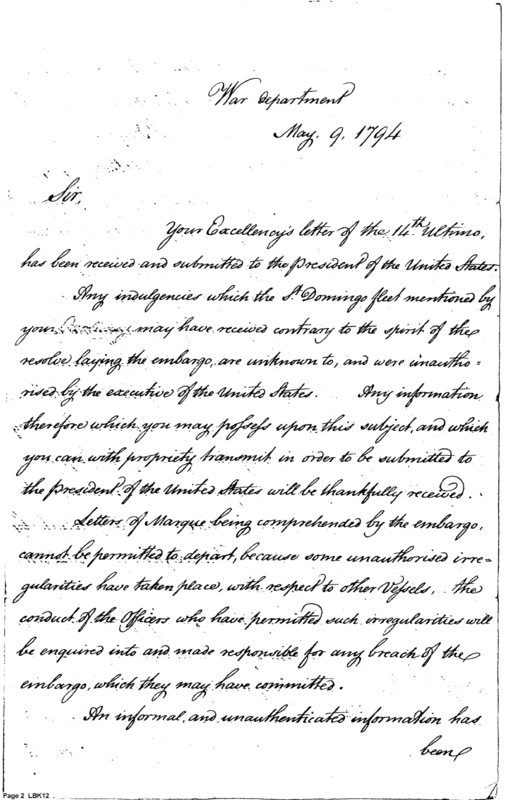 War department
May. 9. 1794
Sir,
Your Excellency's letter of the 14th Ultimo,
has been received and submitted to the President of the United States.
Any indulgencies which the St. Domingo fleet mentioned by
your may have received contrary to the spirit of the
resolve laying the embargo, are unknown to, and were unautho-
rised by the executive of the United States. Any information
therefore which you may possess upon this subject, and which
you can with propriety transmit in order to be submitted to
the President of the United States will be thankfully received.
Letters of Marque being comprehended by the embargo,
cannot be permitted to depart, because some unauthorised irre-
gularities have taken place, with respect to other Vessels, the
conduct of the Officers who have permitted such irregularities will
be enquired into and made responsible for any breach of the
embargo, which they may have committed.
An informal, and unauthenticated information has
been
Page 2 LBK12